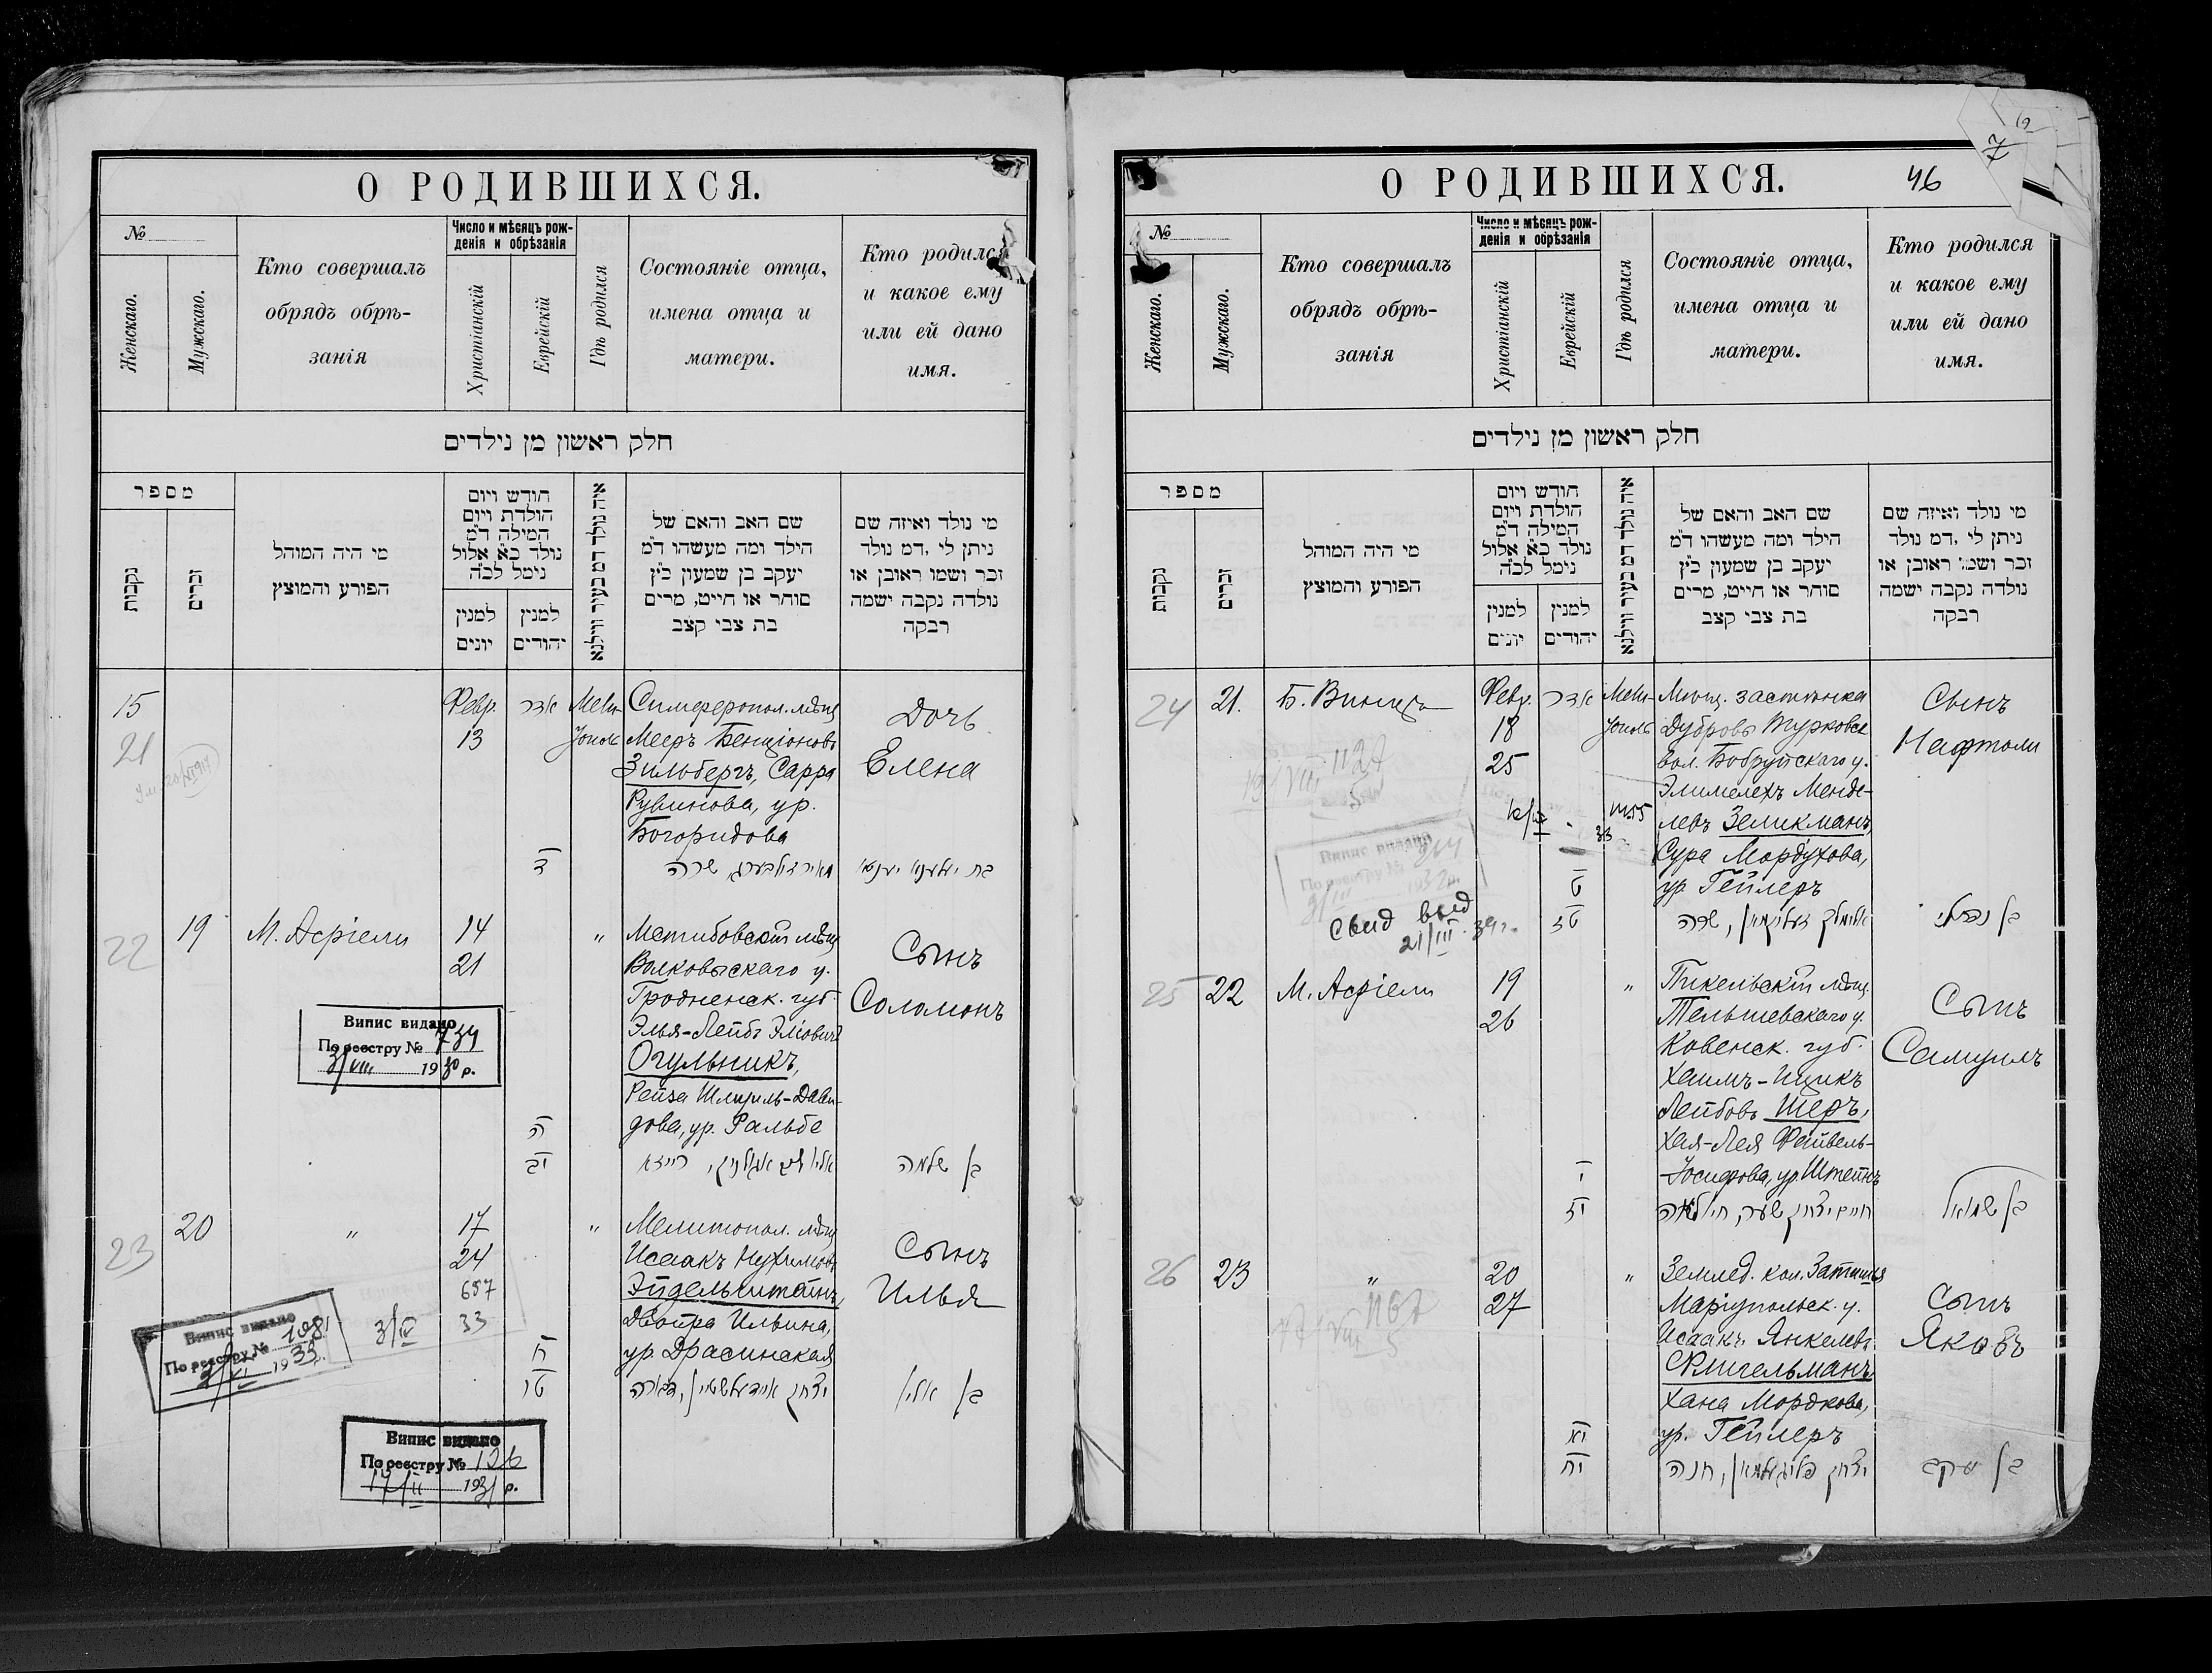 О РОДИВШИХСЯ.
№
Женскаго.
Мужскаго.
Кто совершалъ
обрядъ обрѣ-
занія
Число и мѣсяцъ рож-
денія и обрѣзанія
Христіанскій
Еврейскій
Гдѣ родился
Состояніе отца,
имена отца и
матери.
Кто родился
и какое ему
или ей дано
имя.
חלק ראשון מן נילדים
מספר
נקבות
זכרים
מי היה המוהל
הפורע והמוצץ
חודש ויום
הולדת ויום
המילה ד״מ
נולד כ״א אלול
נימל לכ״ה
למנין
יונים
למנין
יהודים
איה נולד דמ בעיר ווילנא
שם האב והאם של
הילד ומה מעשהו ד״מ
יעקב בן שמעון כ״ץ
סוחר או חייט, מרים
בת צבי קצב
מי נולד ואיזה שם
ניתן לי ,דמ נולד
זכר ושמו ראובן או
נולדה נקבה ישמה
רבקה
15
21
Февр.
13
אדר
ד
Мели-
тополь
Симферопол. мѣщ
Мееръ Бенціоновъ
Зильбергъ, Сарра
Рувинова, ур.
Богоридова
מאיר זילבערג, שרה
Дочь
Елена
22
19
М. Асріели
14
21
ה
יב
"
Волковыскаго у.
Гродненск. губ.
Элья-Лейбъ Эліовичъ
Огульникъ,
Рейза Шмуиль-Дави-
дова, ур. Гальбе
Сынъ
Соломонъ
בן שלמה
Випис видано
По реєстру № 739
3/VIII 1930 р.
23
20
"
17
24
657
33
3/IV
ח
טו
"
Мелитопол. мѣщ
Исаакъ Нухимовъ
Эйдельштейнъ,
Двойра Ильина,
ур. Драсинская
יצחק איידעלשטיין, דבורה
Сынъ
Илья
בן אליו
Випис видано
По реєстру № 198
193 р.
Випис видано
По реєстру № 126
17/II 1931 р.
О РОДИВШИХСЯ.
46
7
№
Женскаго.
Мужскаго.
Кто совершалъ
обрядъ обрѣ-
занія
Число и мѣсяцъ рож-
денія и обрѣзанія
Христіанскій
Еврейскій
Гдѣ родился
Состояніе отца,
имена отца и
матери.
Кто родился
и какое ему
или ей дано
имя.
חלק ראשון מן נילדים
מספר
נקבות
זכרים
מי היה המוהל
הפורע והמוצץ
חודש ויום
הולדת ויום
המילה ד״מ
נולד כ״א אלול
נימל לכ״ה
למנין
יונים
למנין
יהודים
איה נולד דמ בעיר ווילנא
שם האב והאם של
הילד ומה מעשהו ד״מ
יעקב בן שמעון כ״ץ
סוחר או חייט, מרים
בת צבי קצב
מי נולד ואיזה שם
ניתן לי ,דמ נולד
זכר ושמו ראובן או
נולדה נקבה ישמה
רבקה
24
21.
Б. Винцъ
Февр.
18
25
אדר
ט
טז
Мели-
тополь
Мѣщ. застѣнка
Дубровы Турковск
вол. Бобруйскаго у.
Элимелехъ Менде-
левъ Зеликманъ,
Сура Мордухова,
ур. Гейлеръ
אלימלך זעליקמאן, שרה
Сынъ
Нафтоли
בן נפתלי
Випис видано
По реєстру №
1932 р.
Свид выд
21/III 39 г.
25
22
М. Асріели
19
26
י
יז
"
Пикельскій мѣщ.
Тельшевскаго у.
Ковенск. губ.
Хаимъ-Ицикъ
Лейбовъ Шеръ,
Хая-Лея Файвель-
-Іосифова, ур. Штейнъ
Сынъ
Самуилъ
בן שמואל
26
23
"
20
27
יא
יח
"
Землед. кол. Затишья
Маріупольск. у.
Исаакъ Янкелевъ
Флигельманъ,
Хана Мордкова,
ур. Гейлеръ
יצחק פליגעלמאן, חנה
Сынъ
Яковъ
בן יעקב